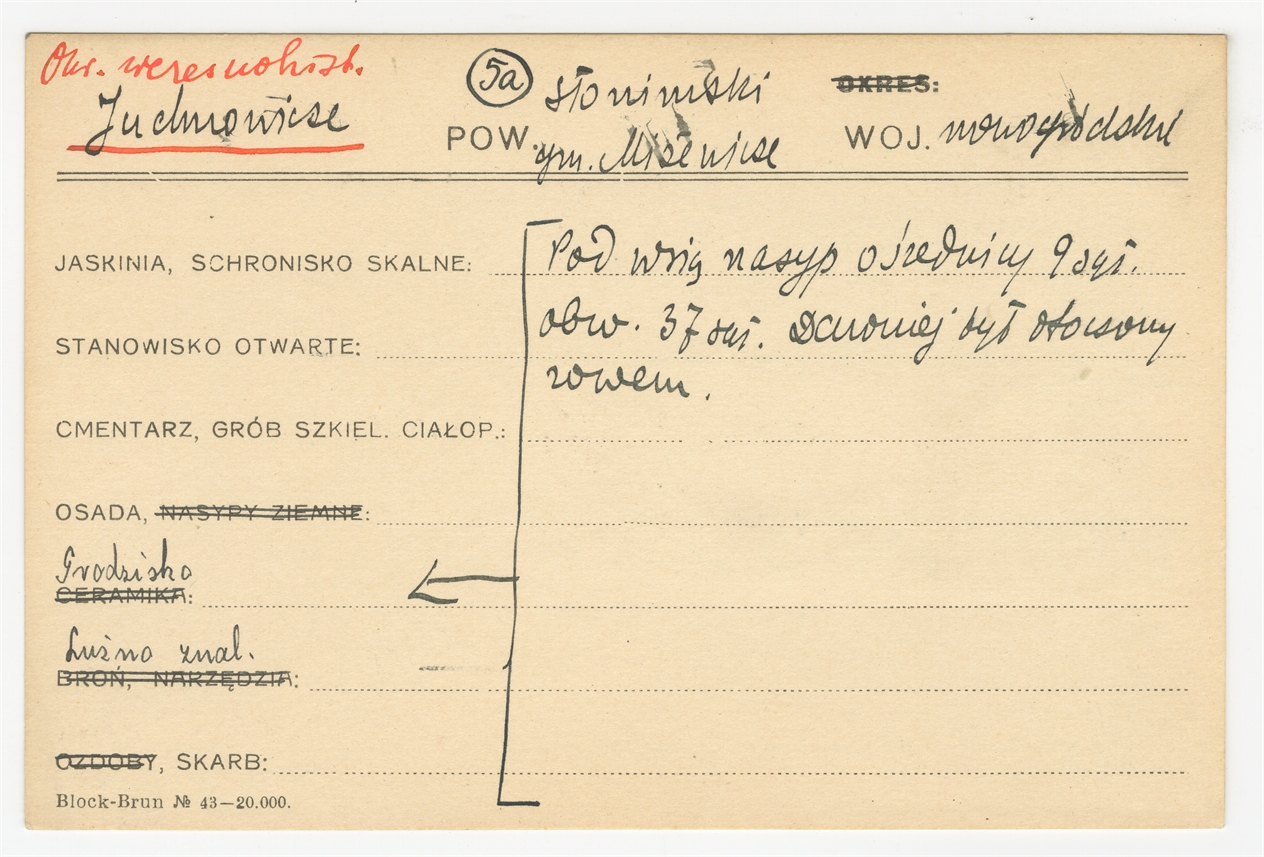 Okr. wczesnohist.
Juchnowicze
5a słonimski
OKRES:
POW. gm. Miżewicze
WOJ. nowogródzkie
JASKINIA, SCHRONISKO SKALNE: Pod wsią nasyp o średnicy 9 sąż.
STANOWISKO OTWARTE: obw. 37 sąż. Dawniej był otoczony
rowem.
CMENTARZ, GRÓB SZKIEL. CIAŁOP.:
OSADA, NASYPY ZIEMNE:
Grodzisko
CERAMIKA:
Luźno znal.
BROŃ, NARZĘDZIA:
OZDOBY, SKARB:
Block-Brun № 43—20.000.